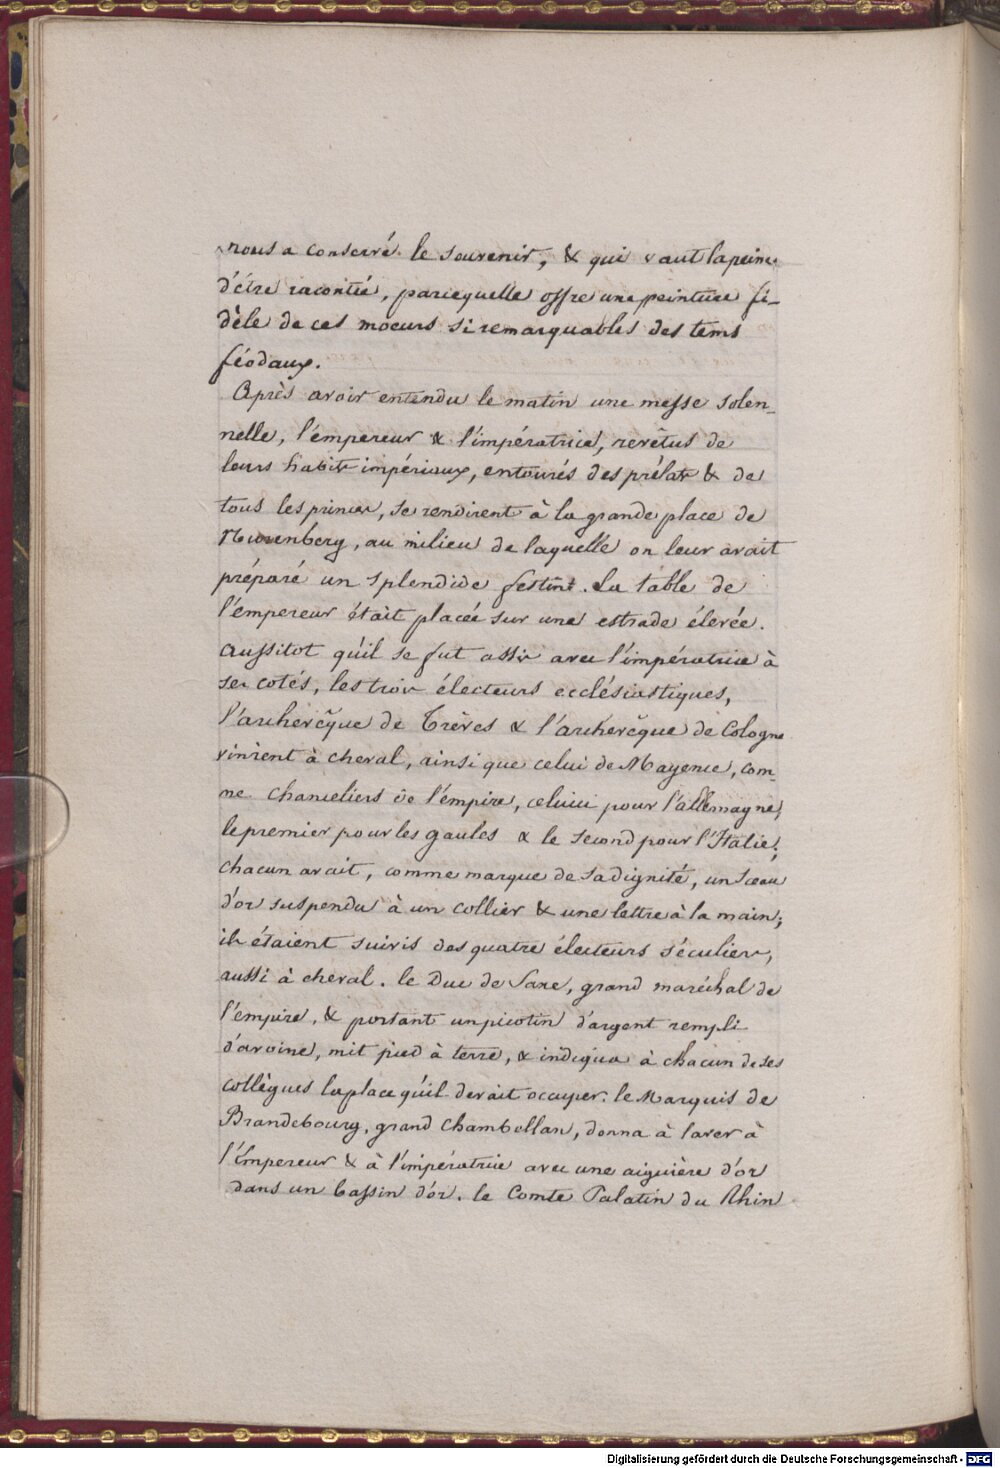 nous a conservé le souvenir, & qui vaut la peine
d'être racontée, parcequ'elle offre une peinture fi-
dèle de ces moeurs si remarquables des tems
féodaux.
Après avoir entendu le matin une messe solen-
nelle, l'empereur & l'impératrice, revêtus de
leurs habits impériaux, entourés des prélats & de
tous les princes, se rendirent à la grande place de
Nurenberg, au milieu de laquelle on leur avait
préparé un splendide festin. La table de
l'empereur était placée sur une estrade élevée.
Aussitot qu'il se fut assis avec l'impératrice à
ses cotés, les trois électeurs ecclésiastiques,
l'archevêque de Trèves & l'archevêque de Cologne
vinrent à cheval, ainsi que celui de Mayence, com-
me chanceliers de l'empire, celuici pour l'allemagne,
le premier pour les gaules & le second pour l'Italie;
chacun avait, comme marque de sa dignité, un sceau
d'or suspendu à un collier & une lettre à la main;
ils étaient suivis des quatre électeurs séculiers,
aussi à cheval. le Duc de Saxe, grand maréchal de
l'empire, & portant un picotin d'argent rempli
d'avoine, mit pied à terre, & indiqua à chacun de ses
collègues la place qu'il devait occuper. le Marquis de
Brandebourg, grand Chambellan, donna à laver à
l'Empereur & à l'impératrice avec une aiguière d'or
dans un bassin d'or. le Comte Palatin du Rhin
Digitalisierung gefördert durch die Deutsche Forschungsgemeinschaft - DFG